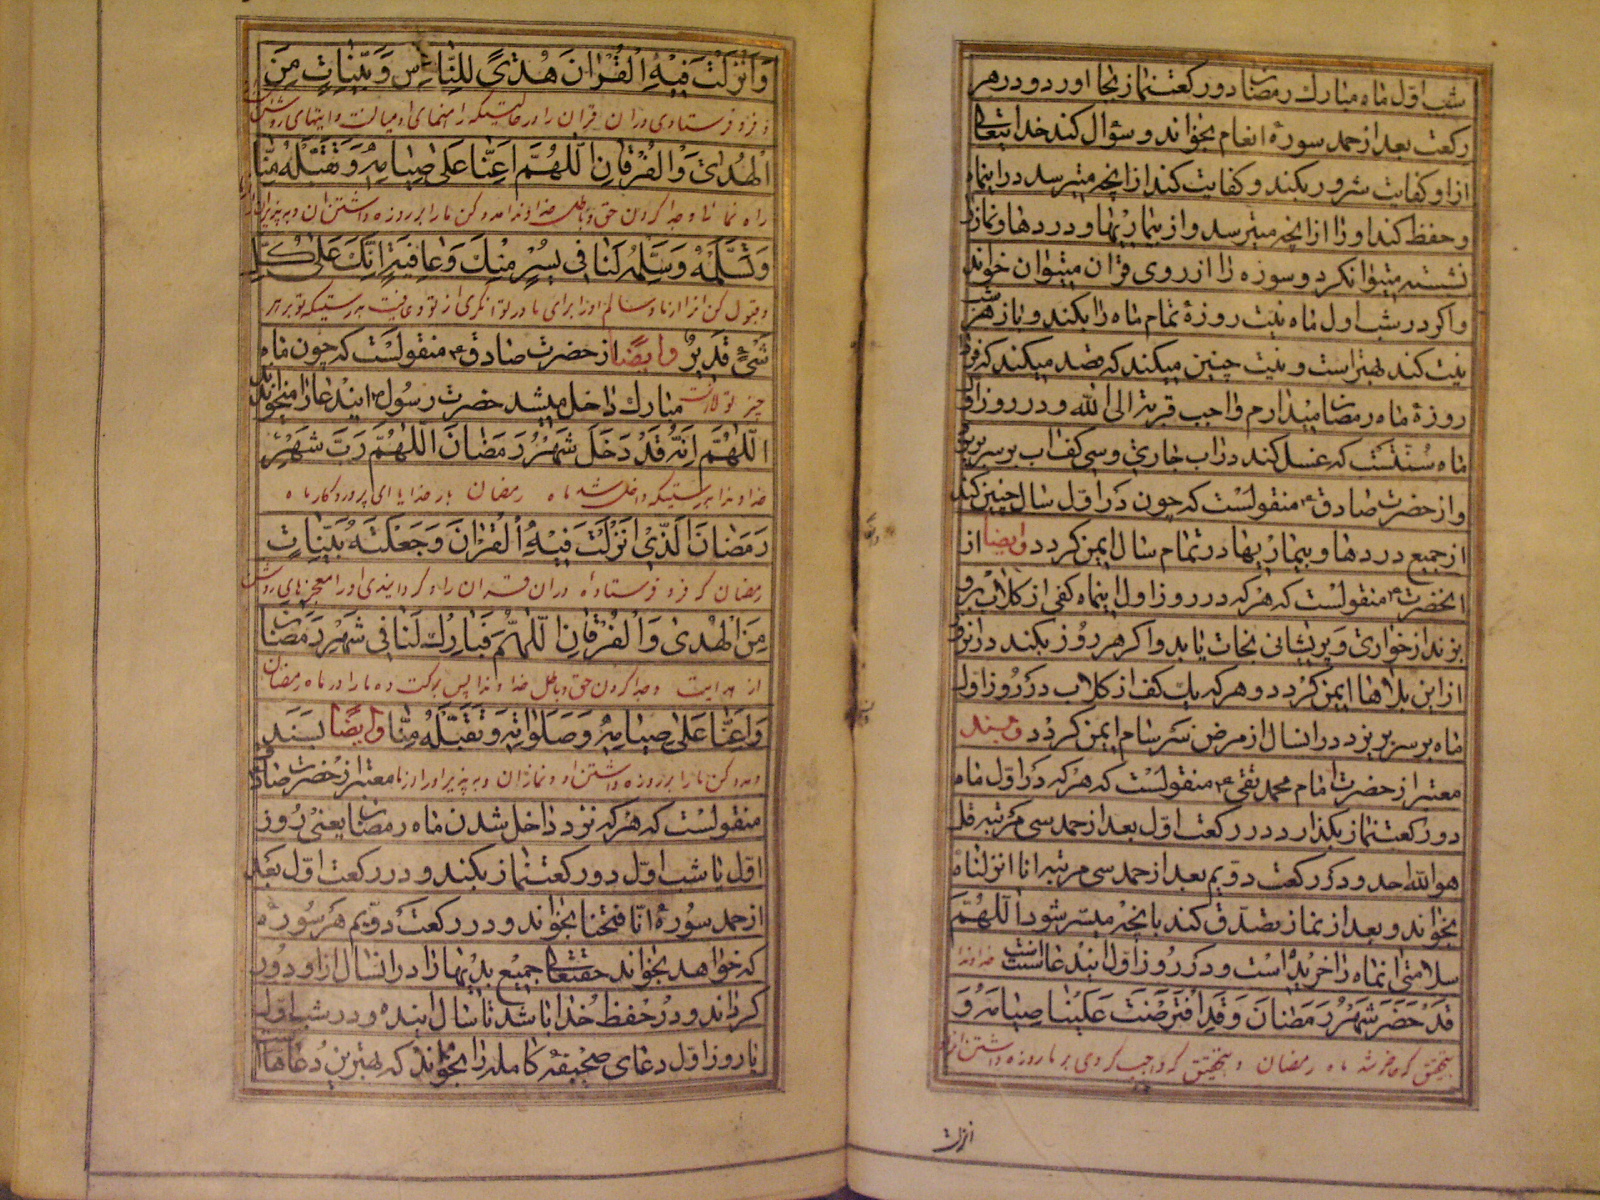 شب اوّل ماه مبارك رمضان دو ركعت نماز بجا اورد و در هر
ركعت بعد از حمد سورهٔ انعام بخواند و سؤال كند خدايتعالى
از او كفايت شرور بكند و كفايت كند از انچه ميترسد در اينماه
و حفظ كند او را از انچه ميترسد و از بيماريها و دردها و نماز را
نشسته ميتوان كرد و سوره را از روى قران ميتوان خواند
و اگر در شب اول ماه نيت روزهٔ تمام ماه را بكند و باز هر شب
نيت كند بهتر است و نيت چنين ميكند كه قصد ميكند كه فردا
روزهٔ ماه رمضان ميدارم واجب قربة الى الله و در روز اول
ماه سنتست كه غسل كند در اب جاري و سى كف اب بر سر بريزد
و از حضرت صادق ع منقولست كه چون در اوّل سال چنين كند
از جميع دردها و بيماريها در تمام سال ايمن كردد و ايضا از
انحضرت ع منقولست كه هر كه در روز اول اينماه كفى از كلاب برو
بزند از خوارى و پريشانى نجات يابد و اكر هر روز بكند در انروز
از اين بلاها ايمن كردد و هر كه يك كف از كلاب در روز اول
ماه بر سر بريزد در انسال از مرض سرسام ايمن كردد و بسند
معتبر از حضرت امام محمد تقى ع منقولست كه هر كه در اوّل ماه
دو ركعت نماز بكذارد در ركعت اوّل بعد از حمد سى مرتبه قل
هو الله احد و در ركعت دويم بعد از حمد سى مرتبه انا انزلناه
بخواند و بعد از نماز تصدّق كند بانچه ميسّر شود اللّهمّ
سلامتى انماه را خريده است و در روز اول ايندعا سنت است خداوندا
قَدْ حَضَرَ شَهْرُ رَمَضانَ وَقَدِ افْتَرَضْتَ عَلَيْنا صِيامَهُ وَ
بتحقيق كه حاضر شد ماه رمضان و بتحقيق كه واجب كردى بر ما روزه داشتن انرا
انزلت
وَاَنْزَلْتَ فيهِ الْقُرْانَ هُدىً لِلنّاسِ وَبَيِّناتٍ مِنَ
و فرو فرستادى در ان قران را در حالتيكه راهنماى ادميانست و ايتهاى روشن
الْهُدى وَالْفُرْقانِ اَللّهُمَّ اَعِنّا عَلى صِيامِهِ وَتَقَبَّلْهُ مِنّا
راه نما و جدا كردن حق و باطل خداوندا مدد كن ما را بر روزه داشتن ان و بپذير انرا
وَتَسَلَّمْهُ وَسَلِّمْهُ لَنا في يُسْرٍ مِنْكَ وَعافِيَةٍ اِنَّكَ عَلى كُلِّ
و قبول كن انرا از ما و سالم او را براى ما در توانگرى از تو و عافيت بدرستيكه تو بر هر
شَيْءٍ قَديرٌ و ايضًا از حضرت صادق ع منقولست كه چون ماه
چيز توانا
مبارك داخل ميشد حضرت رسول ص ايندعا را ميخواند
اَللّهُمَّ اِنَّهُ قَدْ دَخَلَ شَهْرُ رَمَضانَ اَللّهُمَّ رَبَّ شَهْرِ
خداوندا بدرستيكه داخل شد ماه رمضان بار خدايا اى پروردكار ماه
رَمَضانَ الَّذي اَنْزَلْتَ فيهِ الْقُرْانَ وَجَعَلْتَهُ بَيِّناتٍ
رمضان كه فرو فرستادهٔ در ان قران را و گردانيدى او را معجزهاى روشن
مِنَ الْهُدى وَالْفُرْقانِ اَللّهُمَّ فَبارِكْ لَنا في شَهْرِ رَمَضانَ
از هدايت و جدا كردن حق و باطل خداوندا پس بركت ده ما را در ماه رمضان
وَاَعِنّا عَلى صِيامِهِ وَصَلَواتِهِ وَتَقَبَّلْهُ مِنّا و ايضًا بسند
و مدد كن ما را بر روزه داشتن او و نماز ان و بپذير او را از ما معتبر از حضرت صادق
منقولست كه هر كه نزد داخل شدن ماه رمضان يعنى روز
اول يا شب اوّل دو ركعت نماز بكند و در ركعت اوّل بعد
از حمد سورهٔ انّا فتحنا بخواند و در ركعت دويم هر سورهٔ
كه خواهد بخواند حقتعالى جميع بديها را در انسال از او دور
كرداند و در حفظ خدا باشد تا سال اينده و در شب اول
يا روز اوّل دعاى صحيفهٔ كامله را بخواند كه بهترين دعاها